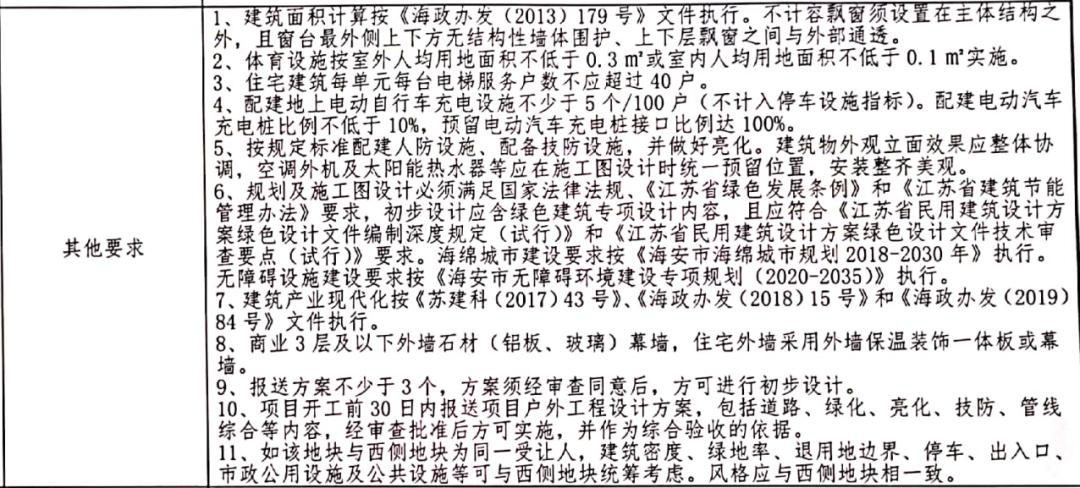 其他要求
1、建筑面积计算按《海政办发（2013）179号》文件执行。不计容飘窗须设置在主体结构之
外，且窗台最外侧上下方无结构性墙体围护、上下层飘窗之间与外部通透。
2、体育设施按室外人均用地面积不低于0.3㎡或室内人均用地面积不低于0.1㎡实施。
3、住宅建筑每单元每台电梯服务户数不应超过40户。
4、配建地上电动自行车充电设施不少于5个/100户（不计入停车设施指标）。配建电动汽车
充电桩比例不低于10%，预留电动汽车充电桩接口比例达100%。
5、按规定标准配建人防设施、配备技防设施，并做好亮化。建筑物外观立面效果应整体协
调，空调外机及太阳能热水器等应在施工图设计时统一预留位置，安装整齐美观。
6、规划及施工图设计必须满足国家法律法规、《江苏省绿色发展条例》和《江苏省建筑节能
管理办法》要求，初步设计应含绿色建筑专项设计内容，且应符合《江苏省民用建筑设计方
案绿色设计文件编制深度规定（试行）》和《江苏省民用建筑设计方案绿色设计文件技术审
查要点（试行）》要求。海绵城市建设要求按《海安市海绵城市规划2018-2030年》执行。
无障碍设施建设要求按《海安市无障碍环境建设专项规划（2020-2035）》执行。
7、建筑产业现代化按《苏建科（2017）43号》、《海政办发（2018）15号》和《海政办发（2019）
84号》文件执行。
8、商业3层及以下外墙石材（铝板、玻璃）幕墙，住宅外墙采用外墙保温装饰一体板或幕
墙。
9、报送方案不少于3个，方案须经审查同意后，方可进行初步设计。
10、项目开工前30日内报送项目户外工程设计方案，包括道路、绿化、亮化、技防、管线
综合等内容，经审查批准后方可实施，并作为综合验收的依据。
11、如该地块与西侧地块为同一受让人，建筑密度、绿地率、退用地边界、停车、出入口、
市政公用设施及公共设施等可与西侧地块统筹考虑。风格应与西侧地块相一致。